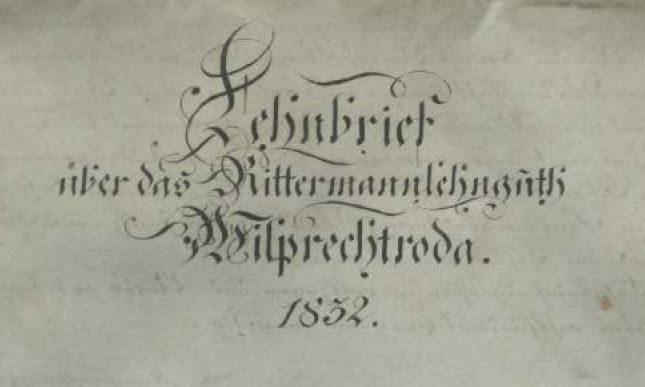 Lehnbrief
über das Rittermannlehngüth
Wilprechtroda.
1832.